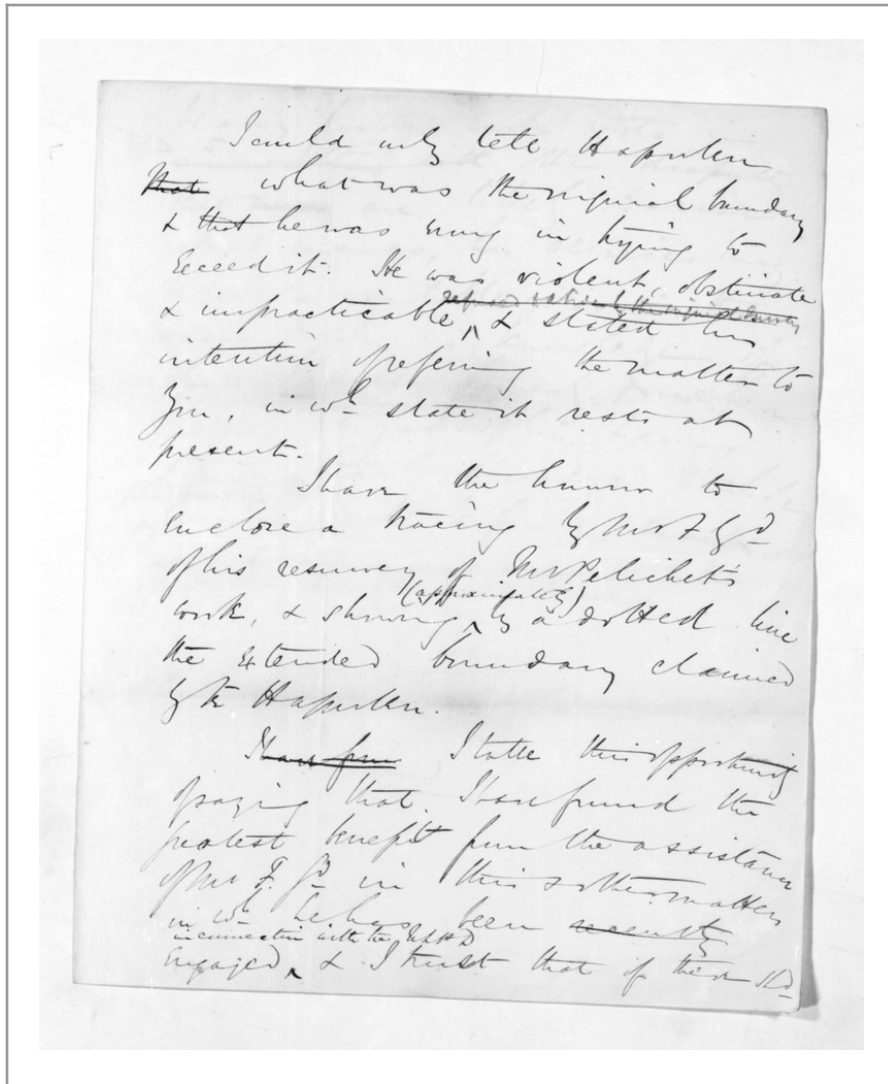 I could only tell Hapuku
that what was the original boundary
& that he was wrong in trying to
exceed it. He was violent, obstinate
refused to abide by the original survey
& impracticable, & stated his
intention of referring the matter to
you, in wh. state it rests at
present.
I have the honor to
enclose a tracing by Mr F. Gd
of his resurvey of Mr Pelichet's
(approximately)
work, & showing, by a dotted line
the extended boundary claimed
by Te Hapuku.
I have found I take this opportunity
of saying that I have found the
greatest benefit from the assistance
of Mr F. Gd in this & other matters
in wh. he has been recently
in connection with the
engaged, & I trust that if there shd